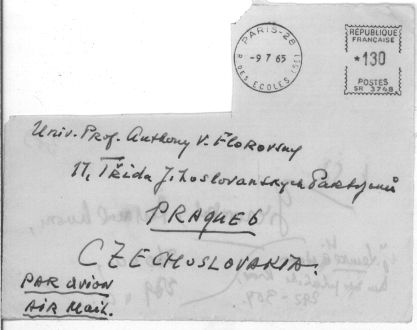 PARIS-28
R. DES ECOLES (5E)
-9 7 65
RÉPUBLIQUE
FRANÇAISE
*130
POSTES
SR 3748
Univ. Prof. Anthony V. Florovsky
17, Třída Jihoslovanských Partyzanů
PRAGUE 6
CZECHOSLOVAKIA.
PAR avion
AIR MAIL.
285-309.